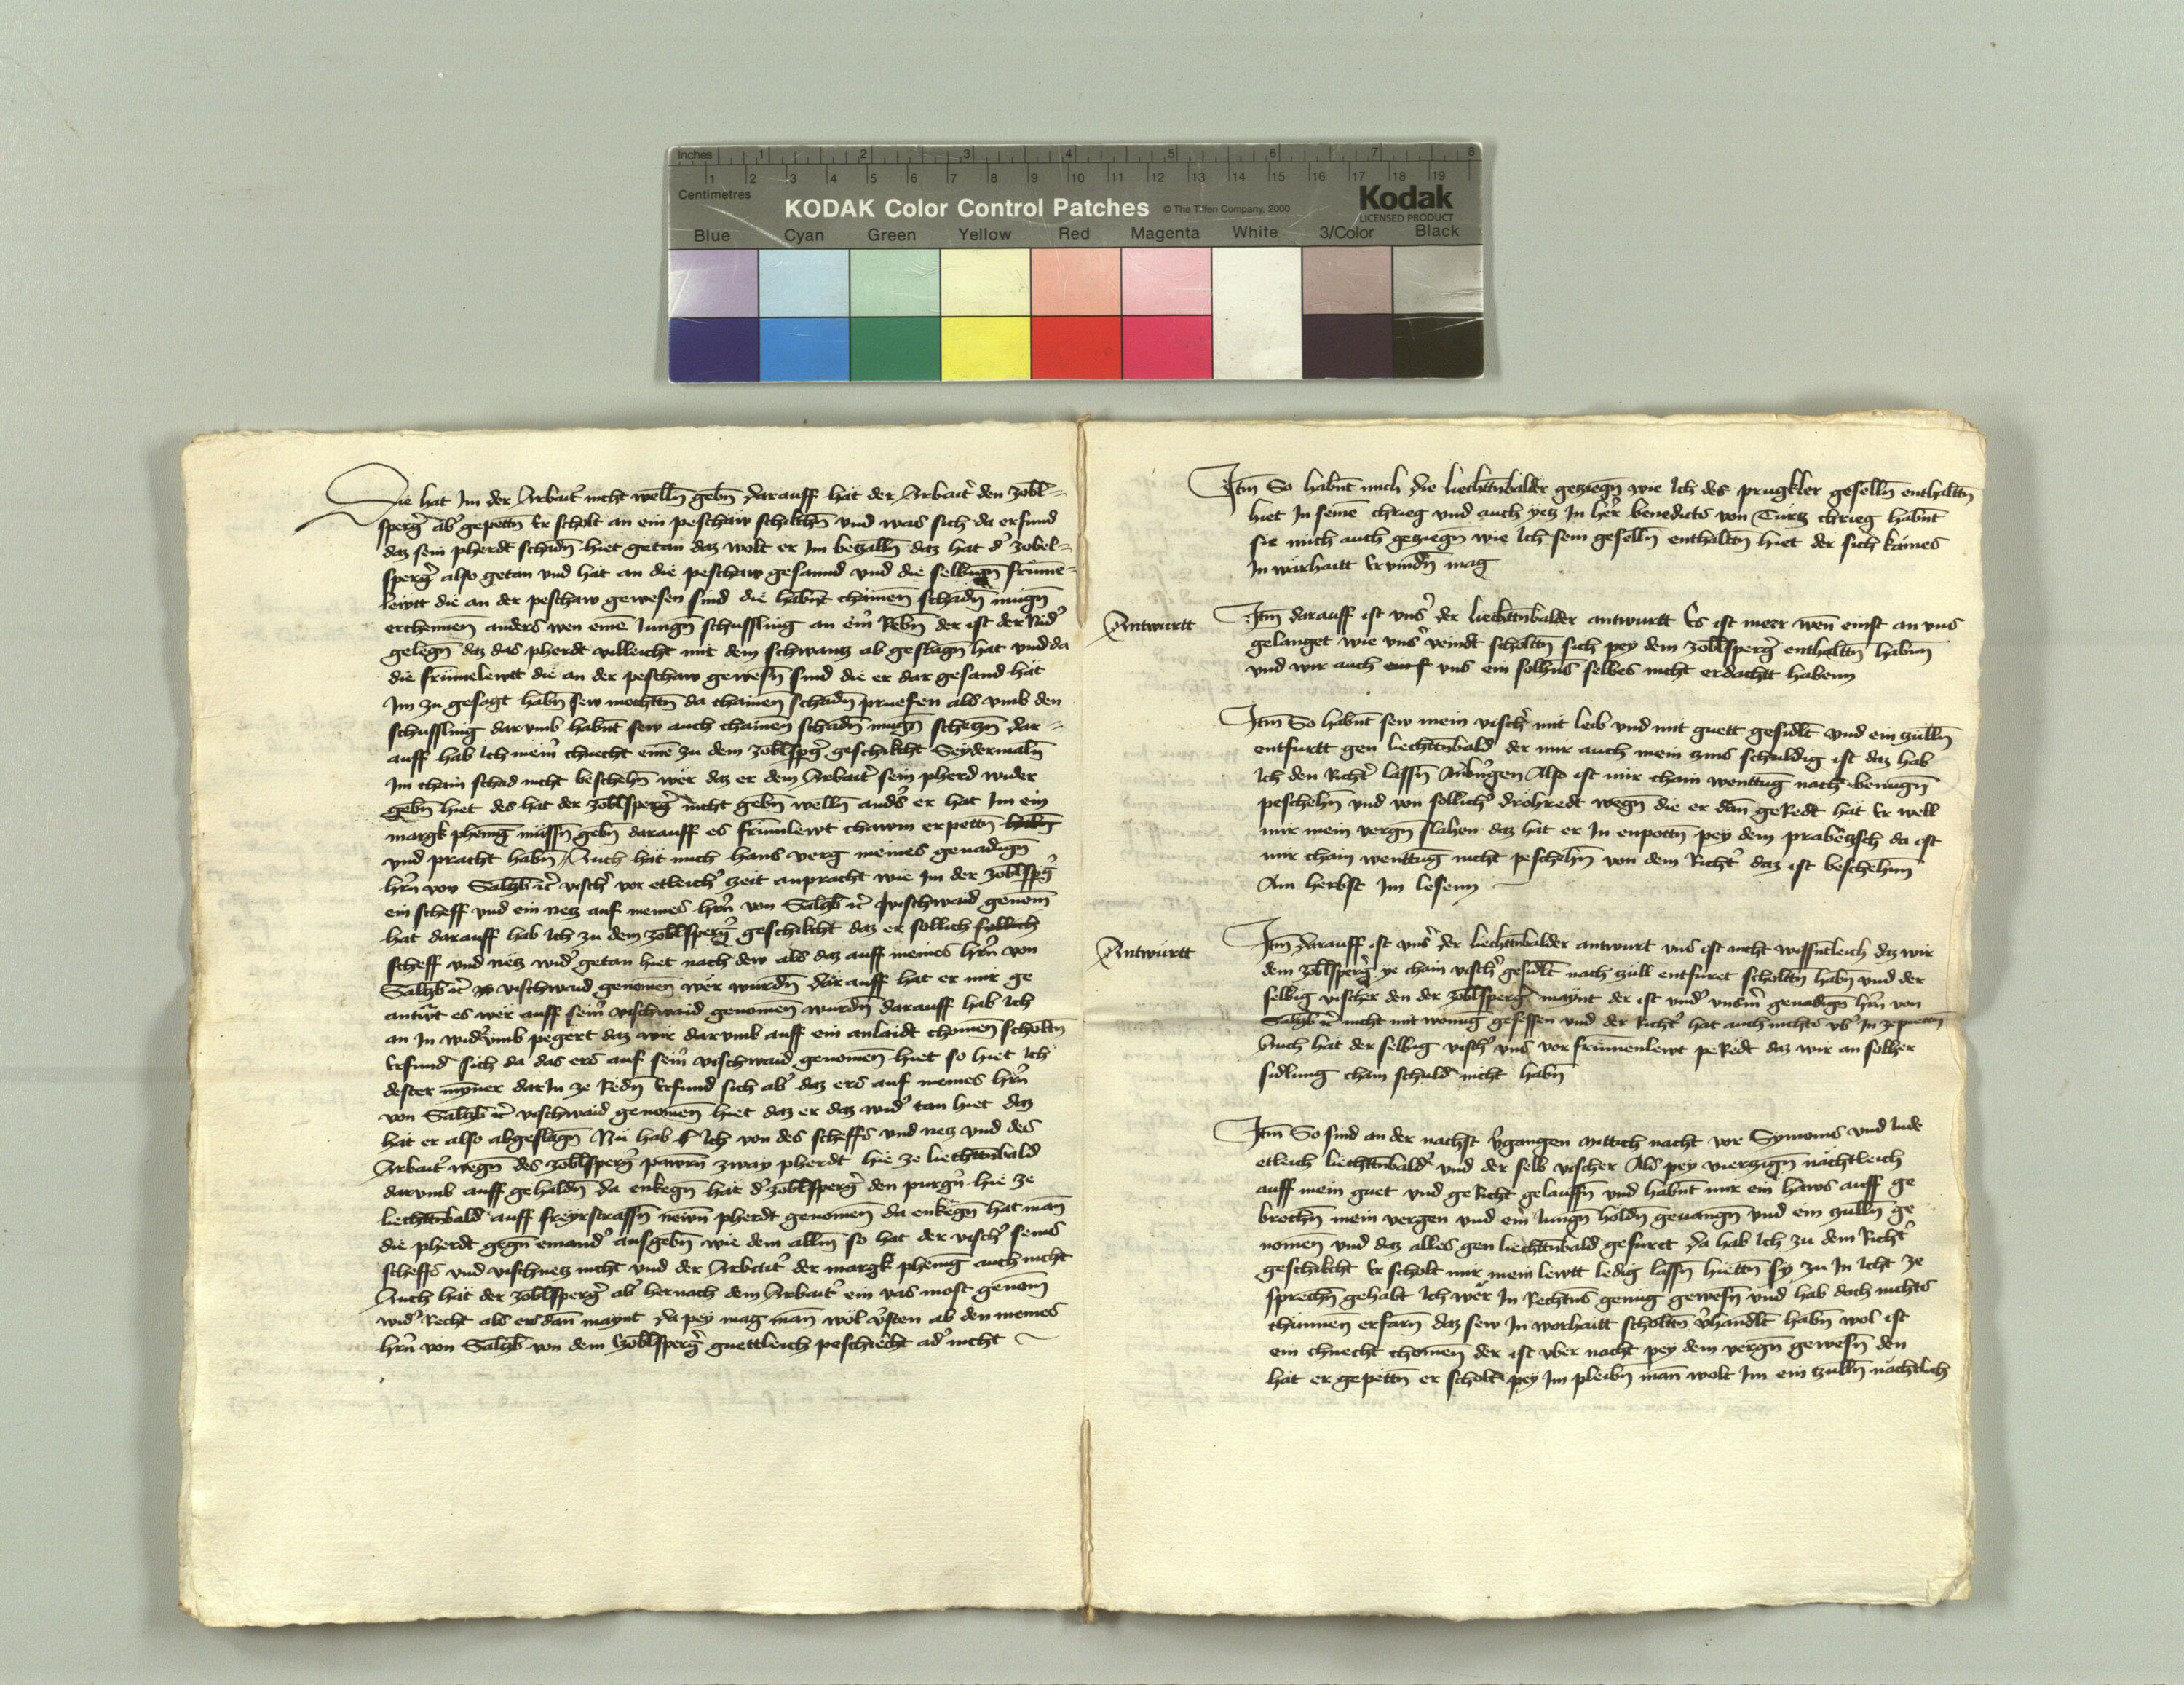 Inches 1 2 3 4 5 6 7 8
1 2 3 4 5 6 7 8 9 10 11 12 13 14 15 16 17 18 19
Centimetres
KODAK Color Control Patches © The Tiffen Company, 2000 Kodak
LICENSED PRODUCT
Blue Cyan Green Yellow Red Magenta White 3/Color Black
Die hat Im der Arbait' nicht welln̄ gebn̄ darauff hat der Arbait' den zobl-
sperg' ab' gepettn̄ Er scholt an ein peschaw schikchn̄ vnd was sich da erfund
daz sein pherdt schadn̄ hiet getan daz wolt er Im betzalln̄ daz hat d' zobel-
sperg' also getan vnd hat an die peschaw gesannd vnd die selbign̄ frume-
lewtt die an der peschaw gewesen sind die habnt chainen schadn̄ mugn̄
erchennen anders wen eine Jungn̄ schussling an ein' Rebn̄ der ist der Nid'
gelegn̄ daz das pherdt villeicht mit dem schwantz ab geslagn̄ hat vnd da
die frumelewtt die an der peschaw gewesn̄ sind die er dar gesand hat
Im zu gesagt habn̄ sew mochttn̄ da chainen schadn̄ pruefen als vmb den
schussling dar vmb habnt sew auch chainen schadn̄ mugn̄ schetzn̄ dar-
auff hab Ich mein' chnecht eine zu dem zoblspg' geschikcht Seydermaln̄
Im chain schad nicht beschehn̄ wer daz er dem Arbait' sein pherd wider
gebn̄ hiet des hat der zoblsperg' nicht gebn̄ welln̄ and's er hat Im ein
margk pheniḡ mussn̄ gebn̄ darauff es frumlewt chawm erpettn̄ habn̄
vnd pracht habn̄ Auch hat mich hans verg meines genadign̄
hr̄n von Saltzb̄ ꝛc' visch' vor etleich' zeit anpracht wie Im der zoblspg'
ein scheff vnd ein netz auf meines hr̄n von Saltzb̄ ꝛc' vischwaid genom̄
hat darauff hab Ich zu dem zoblsperg' geschikcht daz er sollich sollich
scheff vnd netz wid' getan hiet nach dem als daz auff meines hr̄n von
Saltzb̄ ꝛc' vischwaid genomen wer wurdn̄ dar auff hat er mir ge
antw't es wer auff sein' vischwaid genomen wurdn̄ darauff hab Ich
an In wid'vmb pegert daz wir darvmb auff ein anlaidt chomen scholtn̄
Erfund sich da das ers auf sein' vischwaid genomen hiet so hiet Ich
dester mynner darIn ze Redn̄ Erfund sich ab' daz ers auf meines hr̄n
von Saltzb̄ ꝛc' vischwaid genomen hiet daz er daz wid' tan hiet daz
hat er also abgeslagn̄ Nu hab Ich von des scheffs vnd netz vnd des
Arbait' wegn̄ des zoblsperg' pawrn̄ zway pherdt hie ze liechttnbald
darvmb auff gehaldn̄ da enkegn̄ hat d' zoblsperg' den purg'n hie ze
liechttnbald auff freyrstrassn̄ newn̄ pherdt genomen da enkegn̄ hat man
die pherdt gegn̄ einand' ausgebn̄ wie dem alln̄ so hat der visch' seins
scheffs vnd vischnetz nicht vnd der Arbait' der margk pheniḡ auch nicht
Auch hat der zoblsperg' ab' hernach dem Arbait' ein vas most genom̄
wid' Recht als ers dan̄ maynt da pey mag man̄ wol v'sten ab den meines
hr̄n von Saltzb̄ von dem zoblsperg' guettleich peschiecht ad' nicht
Itm̄ So habnt mich die liechttnbalder getziegn̄ wie Ich des prugkler geselln̄ enthalttn̄
hiet In seine chrieg vnd auch yetz In her' benedicts von Turtz chrieg habnt
sie mich auch getziegn̄ wie Ich sein geselln̄ enthalttn̄ hiet der sich kaines
In warhaitt Ervindn̄ mag
Antwurtt
Itm̄ darauff ist vns' der liechttnbalder antwurtt Es ist meer wen̄ einst an vns
gelanget wie vns' veindt scholttn̄ sich pey dem zoblsperg' enthalttn̄ habnn
vnd wir auch vns ein solhns selbes nicht erdachtt habenn
Itm̄ So habnt sew mein visch' mit leib vnd mit guett gesidlt vnd ein zulln̄
entfurtt gen liechttnbald der mir auch mein zins schuldig ist daz hab
Ich den Richt' lassn̄ Also ist mir chain wenttuḡ nach benugn̄
peschehn̄ vnd von sollich' drohredt wegn̄ die er dan̄ geRedt hat Er well
mir mein vergn̄ slahen daz hat er In enpottn̄ pey dem prabetzsch da ist
mir chain wenttuḡ nicht peschehn̄ von dem Richt' daz ist beschehnn
Am herbst Im lesenn
Antwurtt
Itm̄ darauff ist vns' der liechttnbalder antwurt vns ist nicht wissntleich daz wir
dem zoblsperg' ye chain visch' gesidlt nach zull entfuret scholttn̄ habn̄ vnd der
selbig vischer den der zoblsperg' maynt der ist vnd' vns'm genadign̄ hr̄n von
Saltzb̄ ꝛc' nicht mit wonuḡ gesessen vnd der Richt' hat auch nichts vb' In zepiettn̄
Auch hat der selbig visch' vns vor frumenlewt peRedt daz wir an solher
sidlung chain schuld nicht habn̄
Itm̄ So sind an der nachst v'gangen mittich nacht vor Symonis vnd Jude
etleich liechttnbald' vnd der selb vischer Als pey vierzign̄ nachtleich
auff mein guet vnd geRicht gelauffn̄ vnd habnt mir ein haws auff ge
brochn̄ mein vergen vnd ein' Jungn̄ holdn̄ geuangn̄ vnd ein zulln̄ ge
nomen̄ vnd daz alles gen liechttnbald gefurtt da hab Ich zu dem Richt'
geschikcht Er scholt mir mein lewtt ledig lassn̄ hiettn̄ sy zu In Icht ze
sprechn̄ gehabt Ich wer In Rechtns genug gewesn̄ vnd hab doch nichts
chunnen̄ erfarn̄ daz sew In worhaitt scholttn̄ v'handlt habn̄ wol ist
ein chnecht chomen̄ der ist vber nacht pey dem vergn̄ gewesn̄ den
hat er gepettn̄ er scholt pey Im pleibn̄ man̄ wolt Im ein tzulln̄ nachtlich